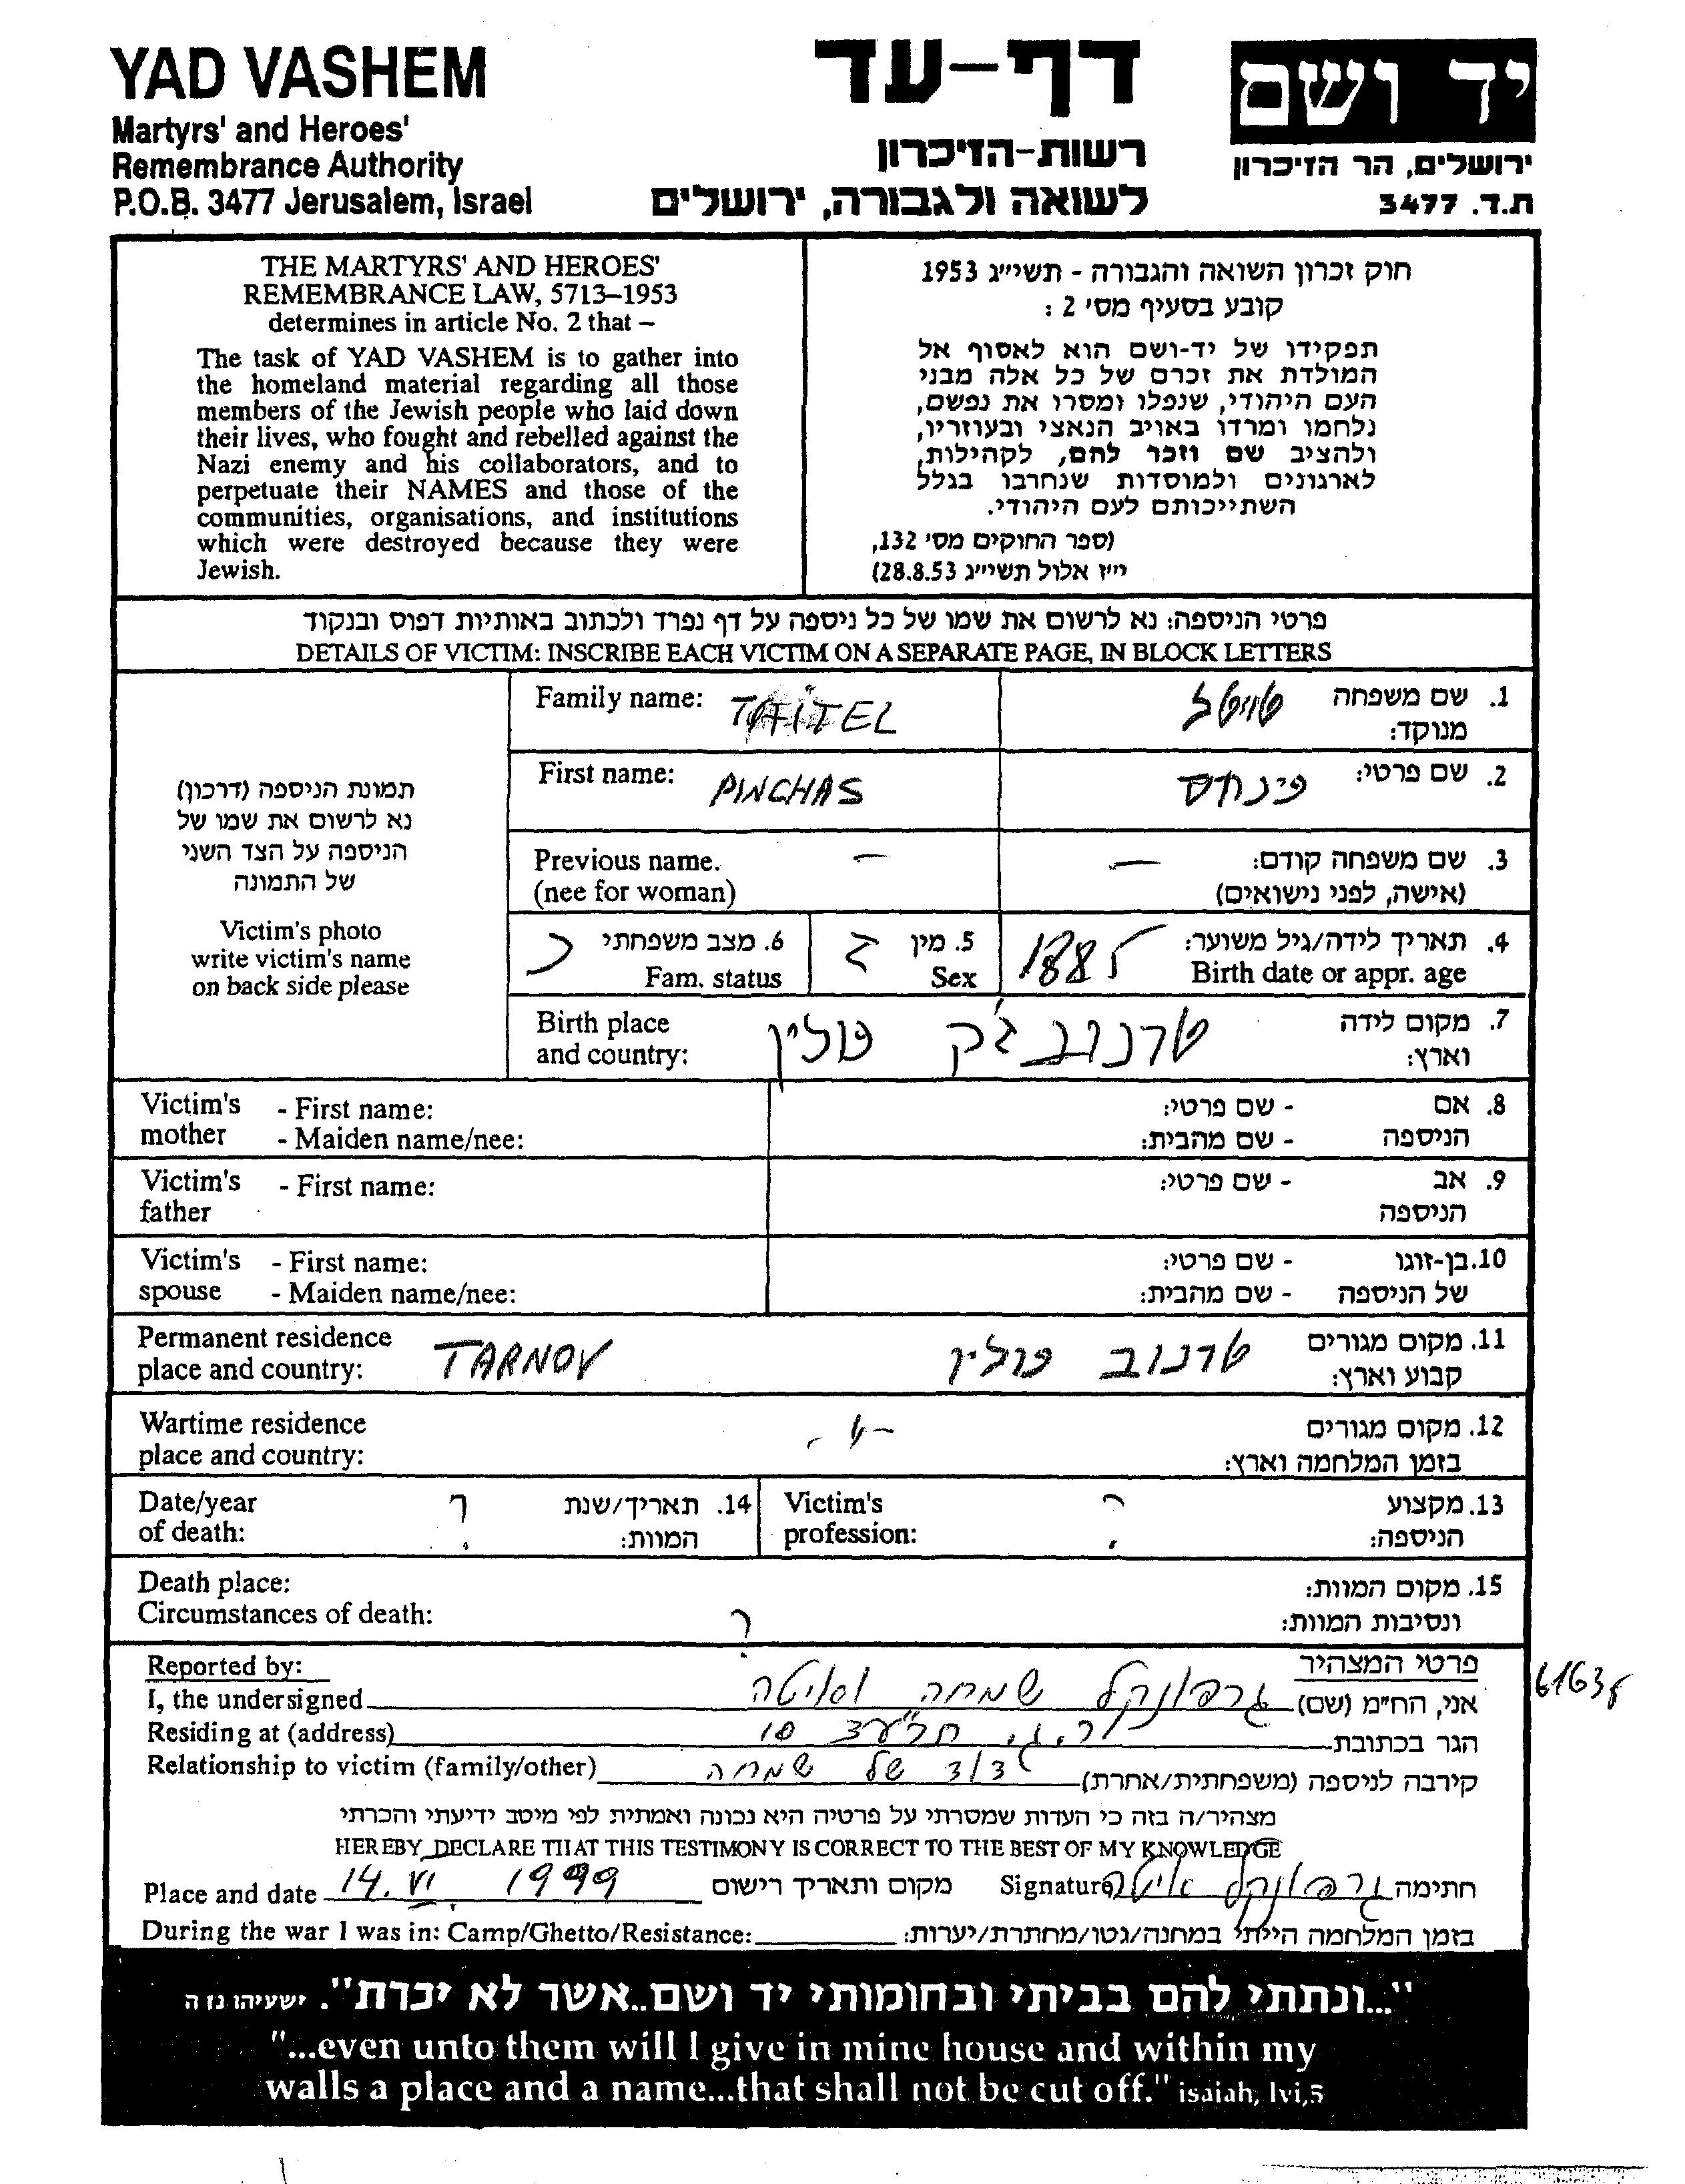 YAD VASHEM
Martyrs' and Heroes'
Remembrance Authority
P.O.B. 3477 Jerusalem, Israel
דף-עד
רשות-הזיכרון
לשואה ולגבורה, ירושלים
יד ושם
ירושלים, הר הזיכרון
ת.ד. 3477
THE MARTYRS' AND HEROES'
REMEMBRANCE LAW, 5713–1953
determines in article No. 2 that –
The task of YAD VASHEM is to gather into
the homeland material regarding all those
members of the Jewish people who laid down
their lives, who fought and rebelled against the
Nazi enemy and his collaborators, and to
perpetuate their NAMES and those of the
communities, organisations, and institutions
which were destroyed because they were
Jewish.
חוק זכרון השואה והגבורה - תשי״ג 1953
קובע בסעיף מס' 2 :
תפקידו של יד-ושם הוא לאסוף אל
המולדת את זכרם של כל אלה מבני
העם היהודי, שנפלו ומסרו את נפשם,
נלחמו ומרדו באויב הנאצי ובעוזריו,
ולהציב שם וזכר להם, לקהילות,
לארגונים ולמוסדות שנחרבו בגלל
השתייכותם לעם היהודי.
(ספר החוקים מס' 132,
י״ז אלול תשי״ג 28.8.53)
פרטי הניספה: נא לרשום את שמו של כל ניספה על דף נפרד ולכתוב באותיות דפוס ובנקוד
DETAILS OF VICTIM: INSCRIBE EACH VICTIM ON A SEPARATE PAGE, IN BLOCK LETTERS
תמונת הניספה (דרכון)
נא לרשום את שמו של
הניספה על הצד השני
של התמונה
Victim's photo
write victim's name
on back side please
Family name:
טייטל
1. שם משפחה
מנוקד:
First name: PINCHAS
פינחס
2. שם פרטי:
Previous name. –
(nee for woman)
–
3. שם משפחה קודם:
(אישה, לפני נישואים)
6. מצב משפחתי
Fam. status
5. מין ז
Sex
1885
4. תאריך לידה/גיל משוער:
Birth date or appr. age
Birth place
and country:
פולין
7. מקום לידה
וארץ:
Victim's - First name:
mother - Maiden name/nee:
8. אם - שם פרטי:
הניספה - שם מהבית:
Victim's - First name:
father
9. אב - שם פרטי:
הניספה
Victim's - First name:
spouse - Maiden name/nee:
10. בן-זוגו - שם פרטי:
של הניספה - שם מהבית:
Permanent residence
place and country: TARNOV
טרנוב פולין
11. מקום מגורים
קבוע וארץ:
Wartime residence
place and country:
-"-
12. מקום מגורים
בזמן המלחמה וארץ:
Date/year
of death:
?
14. תאריך/שנת
המוות:
Victim's
profession:
?
13. מקצוע
הניספה:
Death place:
Circumstances of death:
?
15. מקום המוות:
ונסיבות המוות:
Reported by:
פרטי המצהיר
I, the undersigned
שמחה ואיטה
אני, הח״מ (שם)
Residing at (address)
10
הגר בכתובת
Relationship to victim (family/other)
של שמחה
קירבה לניספה (משפחתית/אחרת)
מצהיר/ה בזה כי העדות שמסרתי על פרטיה היא נכונה ואמתית לפי מיטב ידיעתי והכרתי
HEREBY DECLARE THAT THIS TESTIMONY IS CORRECT TO THE BEST OF MY KNOWLEDGE
Place and date 14. VI. 1999 מקום ותאריך רישום
Signature איטה חתימה
During the war I was in: Camp/Ghetto/Resistance:
בזמן המלחמה הייתי במחנה/גטו/מחתרת/יערות:
"...ונתתי להם בביתי ובחומותי יד ושם..אשר לא יכרת". ישעיהו נו ה
"...even unto them will I give in mine house and within my
walls a place and a name...that shall not be cut off." isaiah, lvi,5